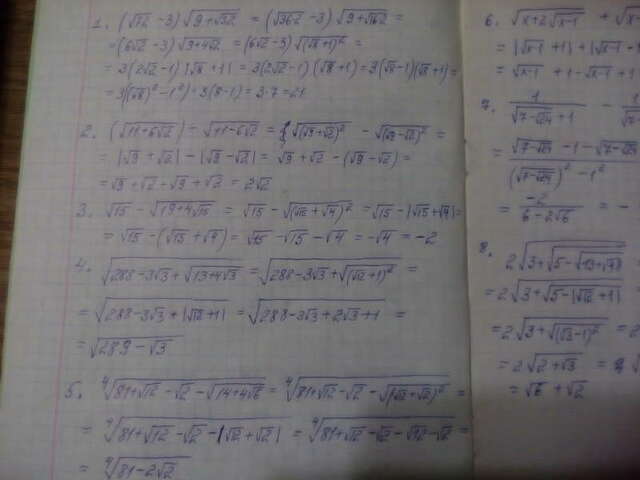 1. (√72 - 3) √9+√32 = (√36·2 - 3) √9+√16·2 =
= (6√2 - 3) √9+4√2 = (6√2 - 3) √(√8+1)² =
= 3(2√2 - 1) |√8 + 1| = 3(2√2 - 1) (√8 + 1) = 3(√8 - 1)(√8 + 1) =
= 3((√8)² - 1²) = 3(8 - 1) = 3·7 = 21
2. (√11+6√2) - √11-6√2 = √(√9+√2)² - √(√9-√2)² =
= |√9 + √2| - |√9 - √2| = √9 + √2 - (√9 - √2) =
= √9 + √2 - √9 + √2 = 2√2
3. √15 - √19+4√15 = √15 - √(√15 + √4)² = √15 - |√15 + √4| =
= √15 - (√15 + √4) = √15 - √15 - √4 = -√4 = -2
4. √288-3√3+√13+4√3 = √288-3√3+√(√12+1)² =
= √288-3√3+|√12+1| = √288-3√3+2√3+1 =
= √289 - √3
5. ⁴√81+√12-√2-√14+4√6 = ⁴√81+√12-√2-√(√12+√2)² =
= ⁴√81+√12-√2-|√12+√2| = ⁴√81+√12-√2-√12-√2 =
= ⁴√81-2√2
6. √x+2√x-1 + √x
= |√x-1 + 1| + |√x-1 -
= √x-1 + 1 - √x-1 + 1
7. 1/(√7-√24 + 1) - 1/(√7-
= (√7-√24 - 1 - √7-√2)/((√7-√24)² - 1²)
= -2/(6-2√6) = -
8. 2√3+√5-√13+√48 =
= 2√3+√5-|√12+1| =
= 2√3+√(√3-1)² = 2
= 2√2+√3 =
= √6 + √2